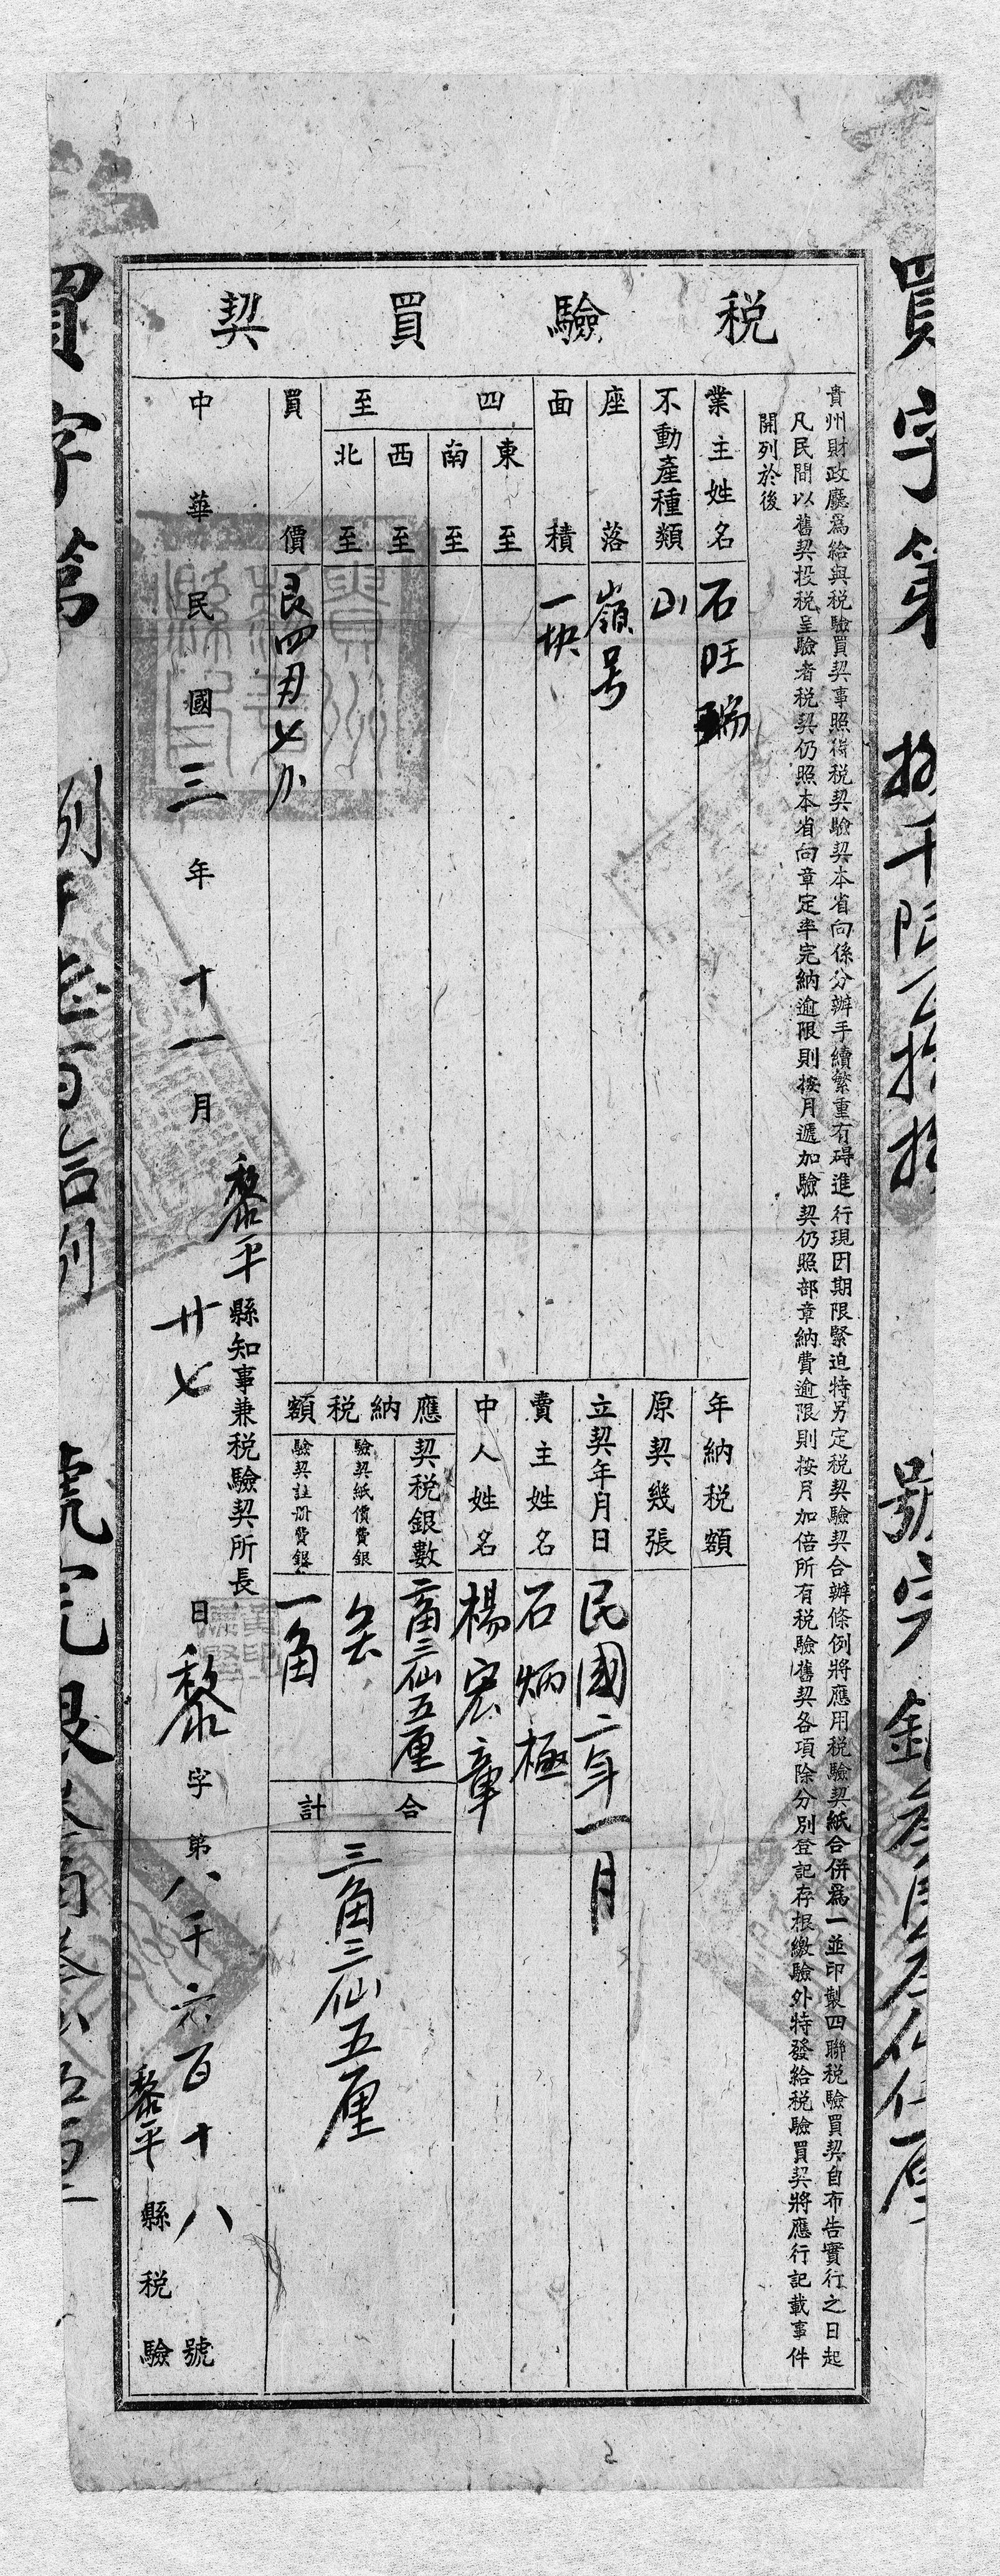 稅驗買契
貴州財政廳爲給與稅驗買契事照得稅契驗契本省向係分辦手續繁重有碍進行現因期限緊迫特另定稅契驗契合辦條例將應用稅驗契紙合併爲一並印製四聯稅驗買契自布告實行之日起
凡民間以舊契投稅呈驗者稅契仍照本省向章定率完納逾限則按月遞加驗契仍照部章納費逾限則按月加倍所有稅驗舊契各項除分別登記存根繳驗外特發給稅驗買契將應行記載事件
開列於後
業主姓名 石旺瑞
不動產種類 山
座落 嶺号
面積 一块
四至
東至
南至
西至
北至
買價 艮四刄七卜
年納稅額
原契幾張
立契年月日 民國二年一月
賣主姓名 石炳極
中人姓名 楊宏章
應納稅額
契稅銀數 二角三仙五厘
驗契紙價費銀
驗契註册費銀 一角
合計 三角三仙五厘
中華民國三年十一月廿七日
黎平縣知事兼稅驗契所長
黎字第八千六百十八號
黎平縣稅驗
買字第
號完銀